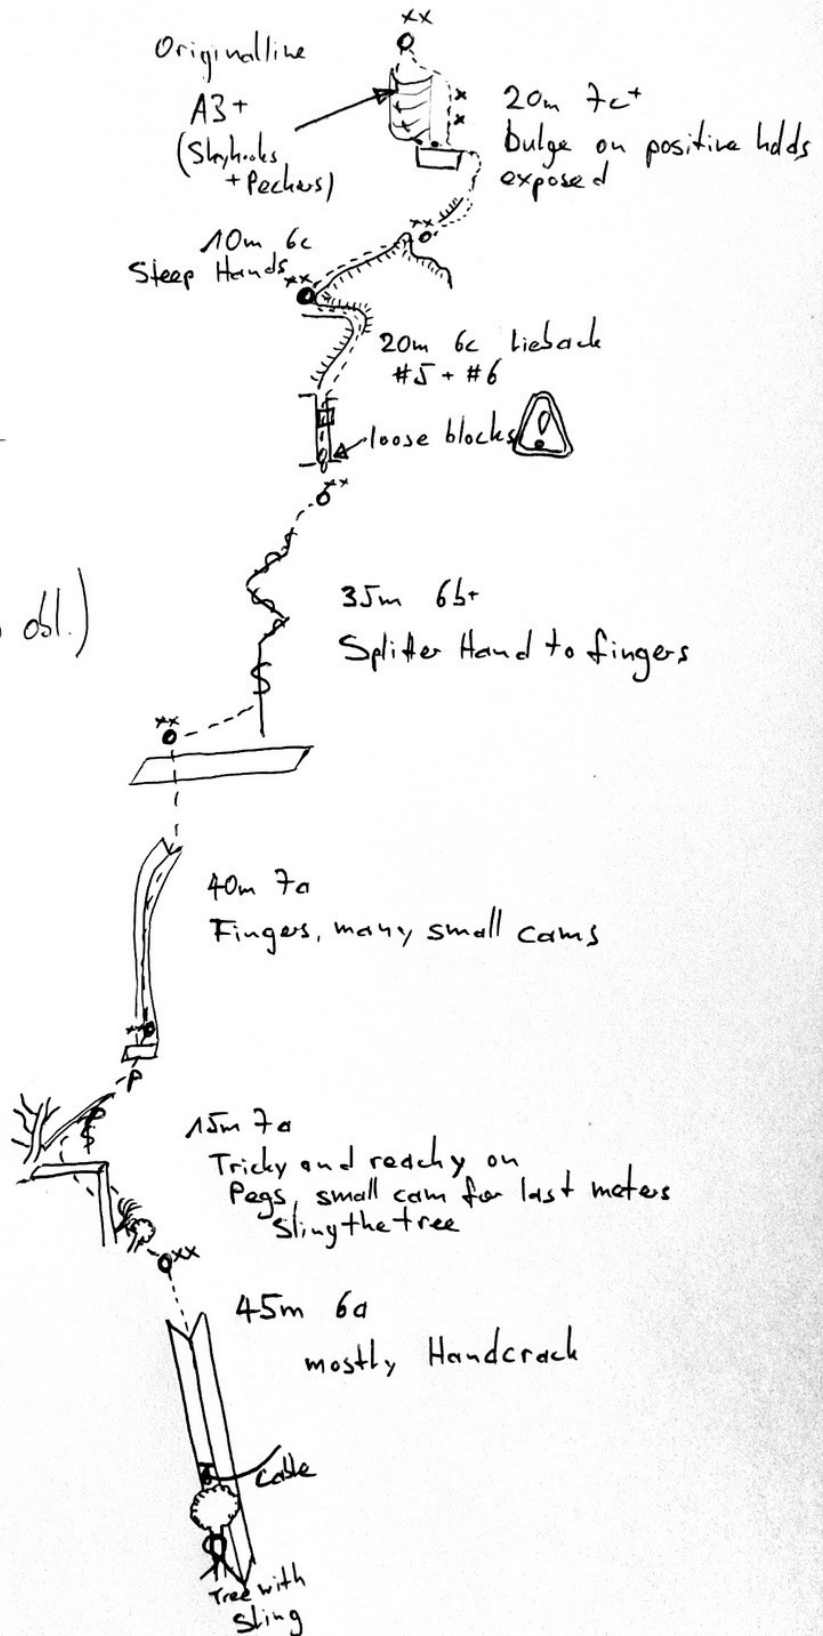 Originalline
A3+
(Skyhooks
+ Peckers)
xx
x
x
20m 7c+
bulge on positive holds
exposed
xx
10m 6c
Steep Hands
xx
20m 6c Lieback
#5 + #6
loose blocks !
xx
35m 6b+
Splitter Hand to fingers
obl.)
xx
40m 7a
Fingers, many small cams
xx
P
15m 7a
Tricky and reachy on
Pegs, small cam for last meters
Sling the tree
xx
45m 6a
mostly Handcrack
Cable
Tree with
Sling